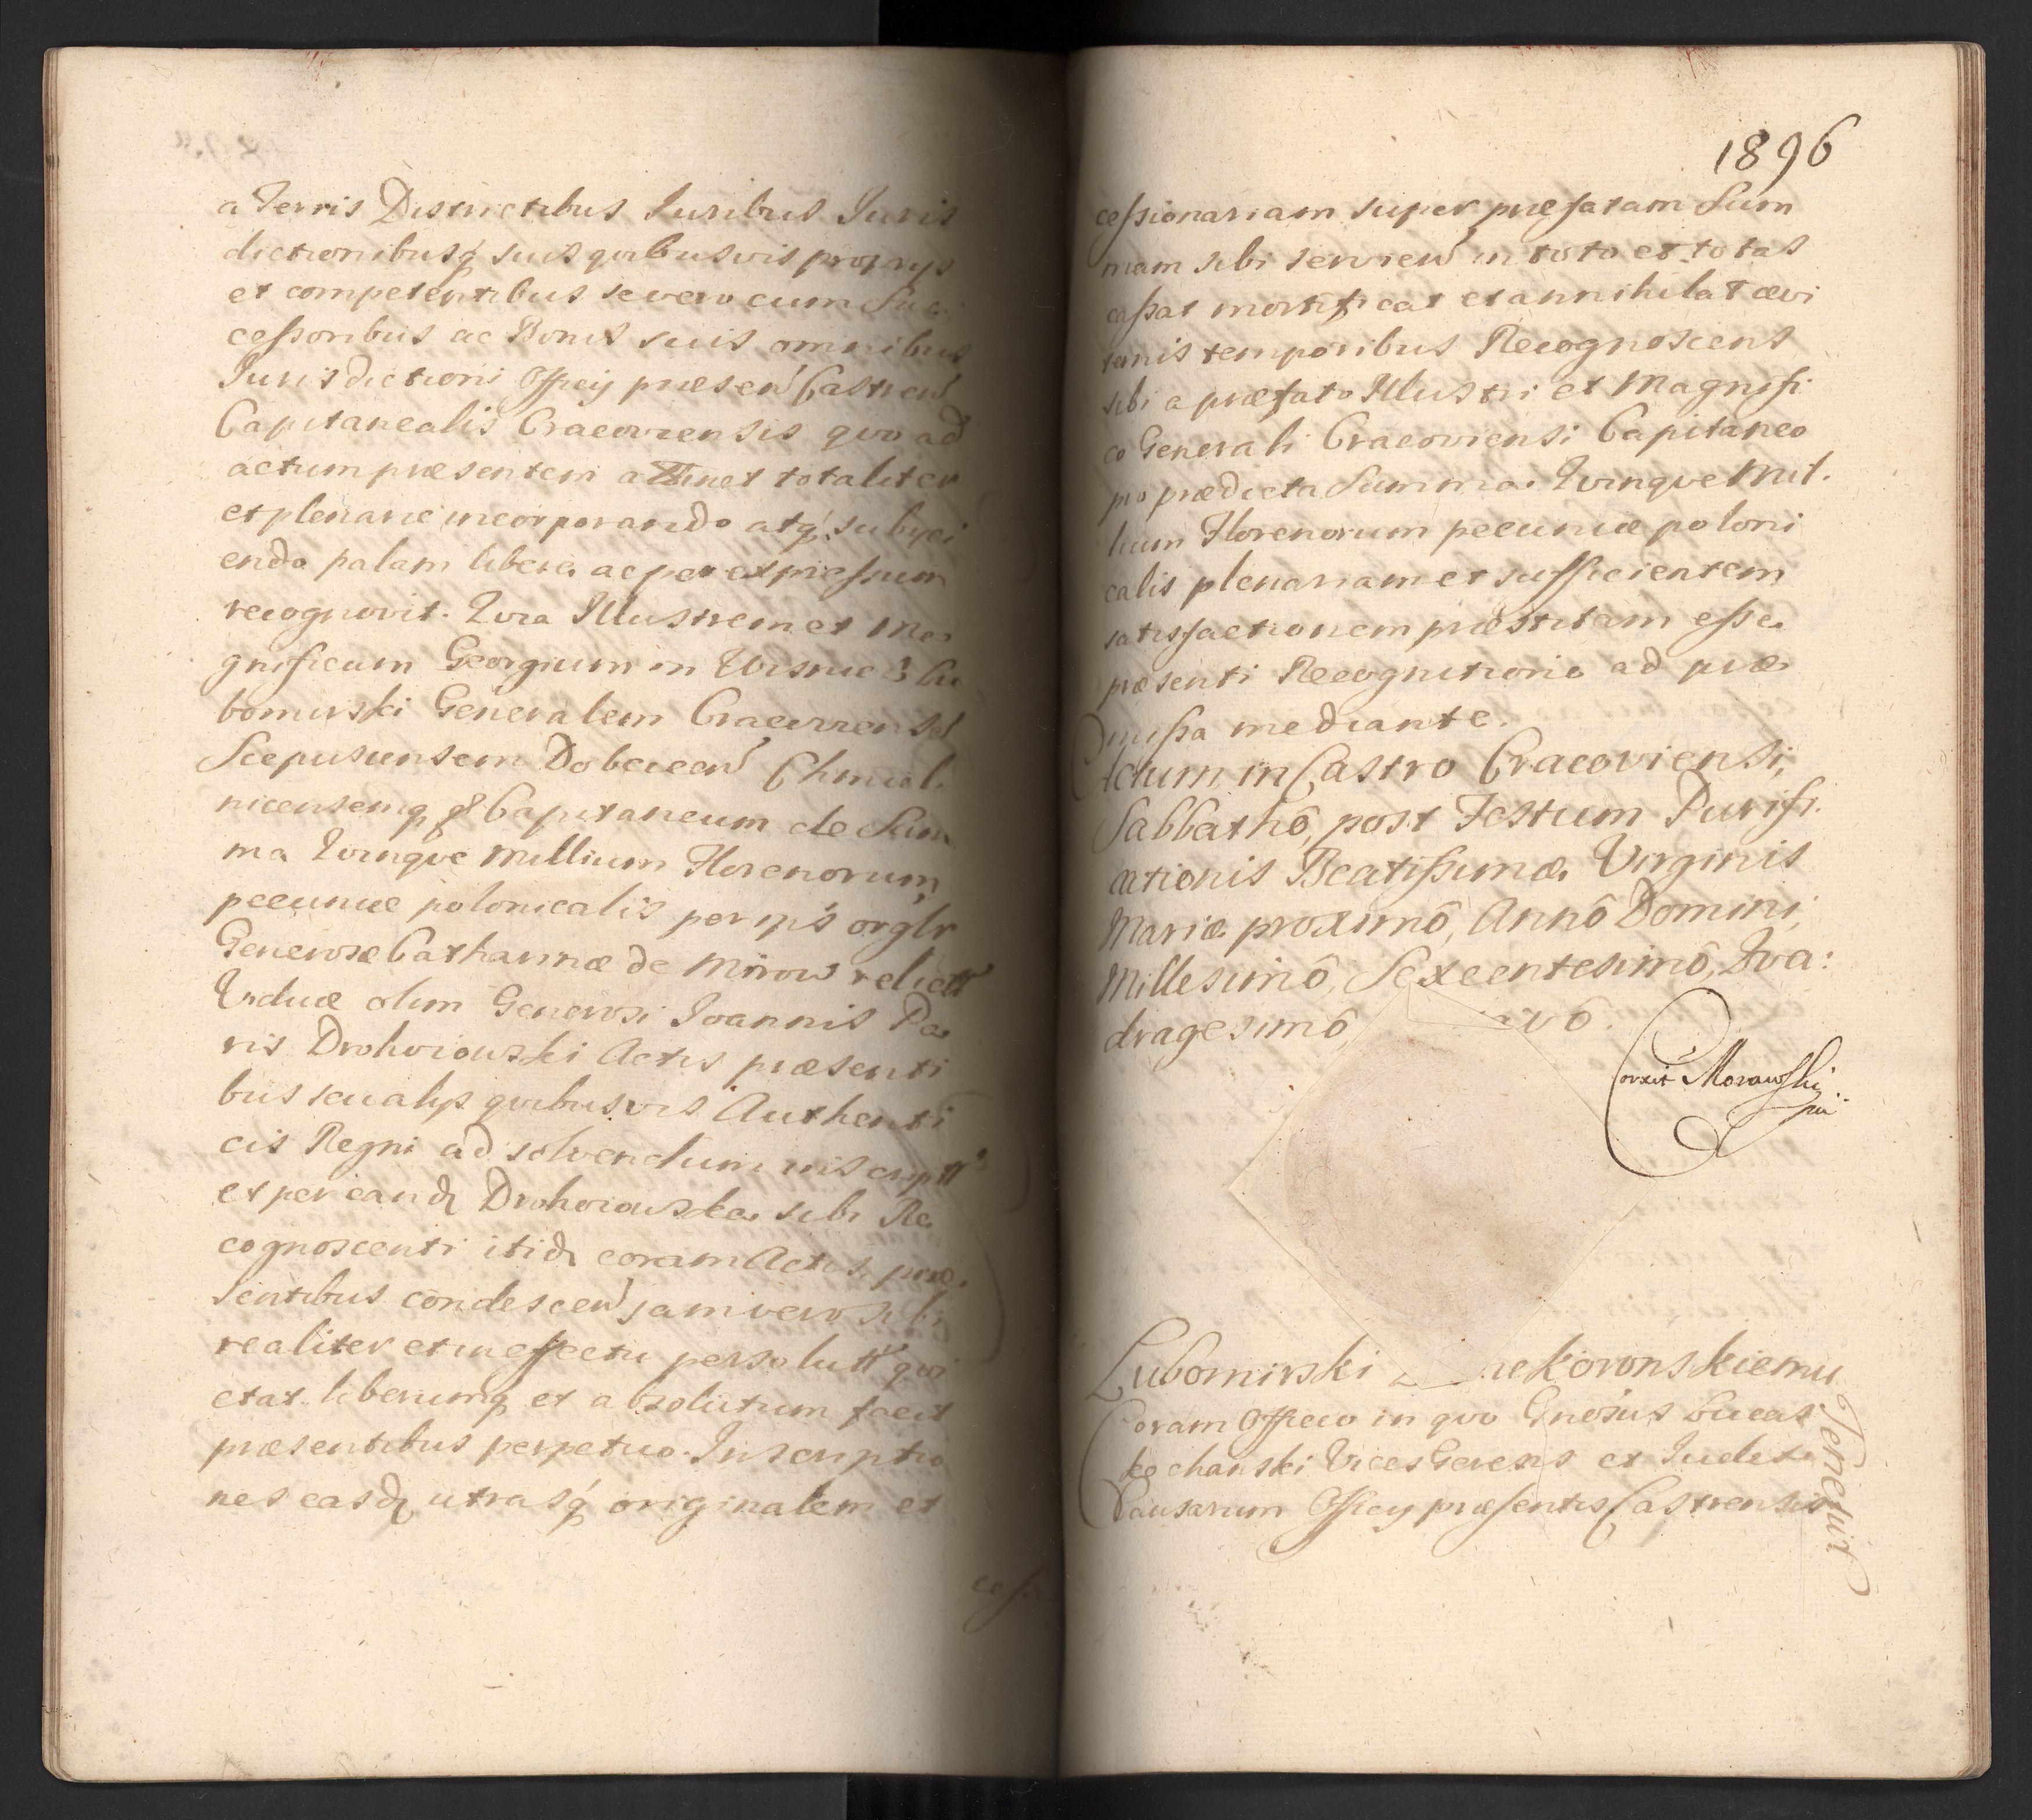 a Terris Districtibus Iuribus Iuris
dictionibusq́ suis quibusvis proprys
et competentibus se vero cum Suc
cessoribus ac Bonis suis omnibus
Iurisdictioni Officy praesen Castren
Capitanealis Cracoviensis quo ad
actum praesentem attinet totaliter
et plenarie incorporando atq́ subyci
endo palam libere ac per expressum
recognovit. Qvia Illustrem et Ma
gnificum Georgium in Wisnicz Lu
bomirski Generalem Cracovien
Scepusiensem Dobczecen Chmiel
nicensemq Capitaneum de Sum
ma Qvinqve Millium Florenorum
pecuniae polonicalis per ips orglr
Generosae Catharinae de Mirow relictt
Viduae olim Generosi Ioannis Pa
ris Drohoiowski Actis praesenti
bus seu alys quibusvis Authenti
cis Regni ad solvendum inscriptt
et per eand Drohoiowska sibi Re
cognoscenti itid coram Actis prae
sentibus condescen jam vero sibi
realiter et in effectu persolutt qvi
etat liberumq et absolutum facit
praesentibus perpetuo. Inscriptio
nes easd utrasq́ originalem et
cessi
1896
cessionariam super praefatam Sum
mam sibi servien in toto et totas
cassat mortificat et annihilat aevi
ternis temporibus Recognoscens
sibi a praefato Illustri et Magnifi
co Generali Cracoviensi Capitaneo
pro praedicta Summa Qvinqve Mil
lium Florenorum pecuniae poloni
calis plenariam et sufficientem
satisfactionem praestitam esse
praesenti Recognitione ad prae
missa mediante.
Actum in Castro Cracoviensi,
Sabbathô, post Festum Purifi
cationis Beatissimae Virginis
Mariae proximô, Annô Domini,
Millesimô, Sexcentesimô, Qva:
dragesimô avô.
Corxit Morawski
Lubomirski Koronskiemu
Coram Officio in qvo Gnosus Lucas
Kochanski Vices Gerens et Iudex
Causarum Officy praesentis Castrensis